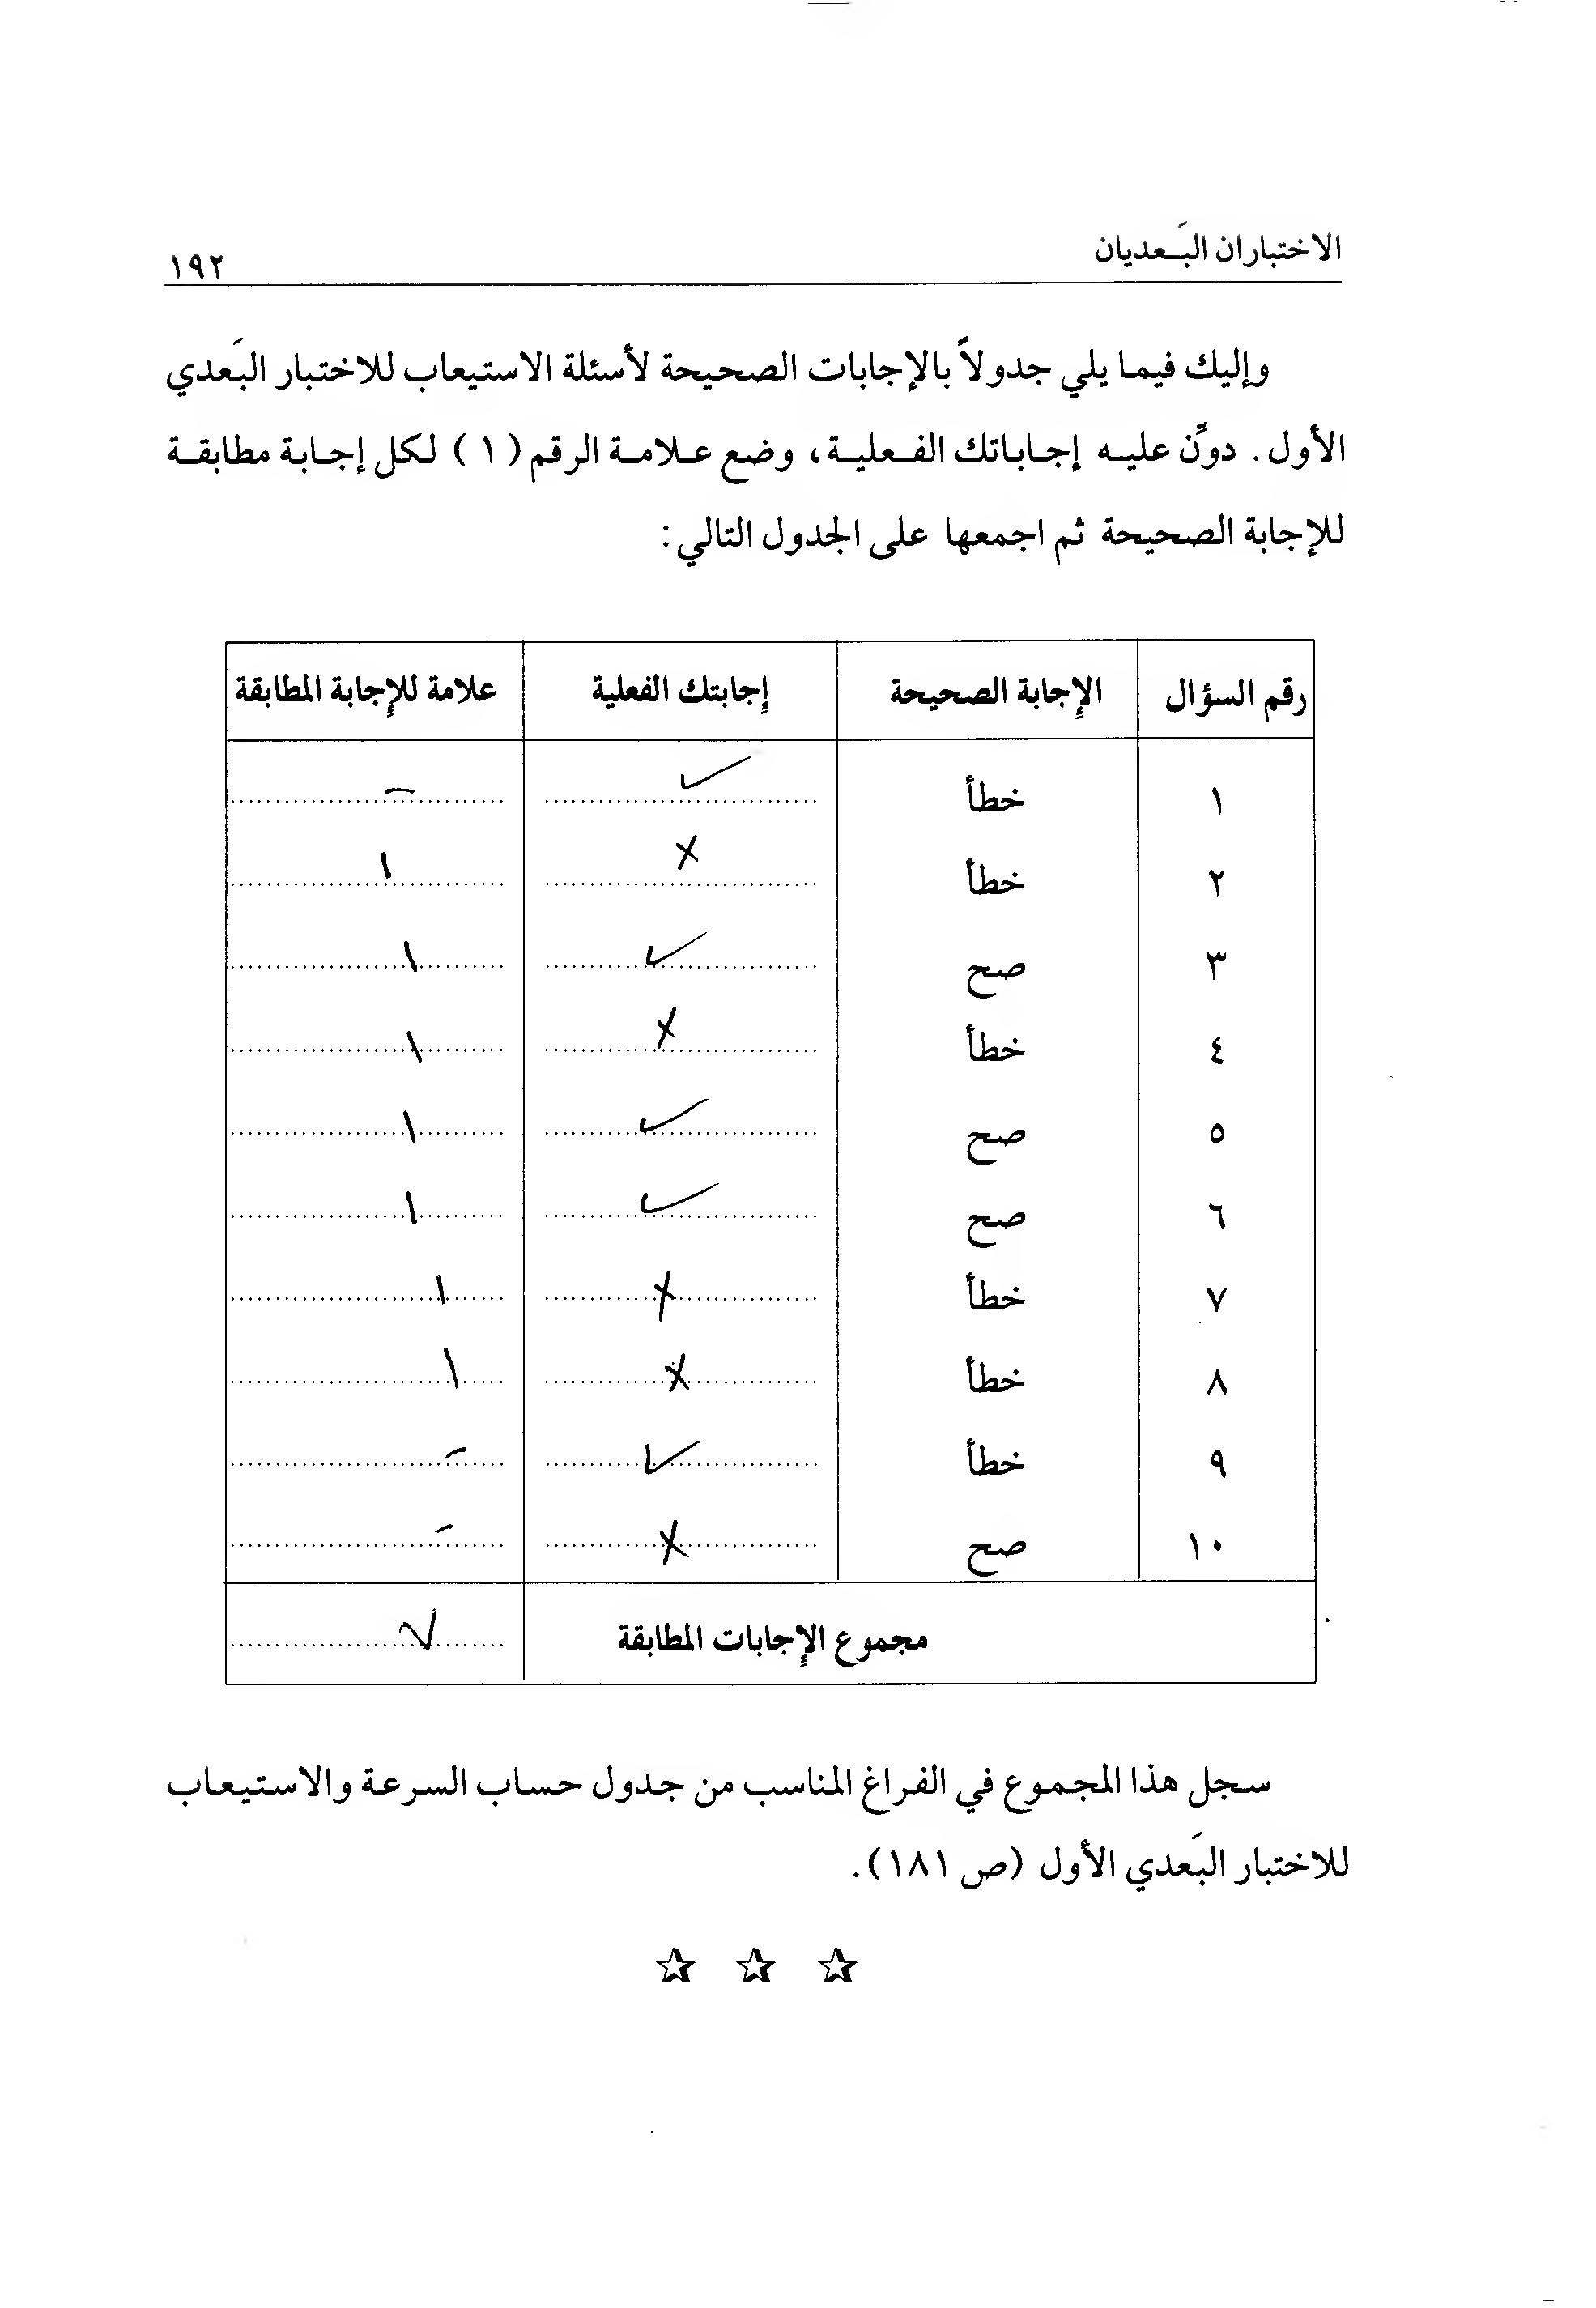 الاختباران البَعديان
١٩٢
وإليك فيما يلي جدولاً بالإجابات الصحيحة لأسئلة الاستيعاب للاختبار البَعدي
الأول. دوِّن عليه إجاباتك الفعلية، وضع علامة الرقم (١) لكل إجابة مطابقة
للإجابة الصحيحة ثم اجمعها على الجدول التالي:
رقم السؤال الإجابة الصحيحة إجابتك الفعلية علامة للإجابة المطابقة
١ خطأ ✓ -
٢ خطأ ✗ ١
٣ صح ✓ ١
٤ خطأ ✗ ١
٥ صح ✓ ١
٦ صح ✓ ١
٧ خطأ ✗ ١
٨ خطأ ✗ ١
٩ خطأ ✓ -
١٠ صح ✗ -
مجموع الإجابات المطابقة ٧
سجل هذا المجموع في الفراغ المناسب من جدول حساب السرعة والاستيعاب
للاختبار البَعدي الأول (ص ١٨١).
☆ ☆ ☆